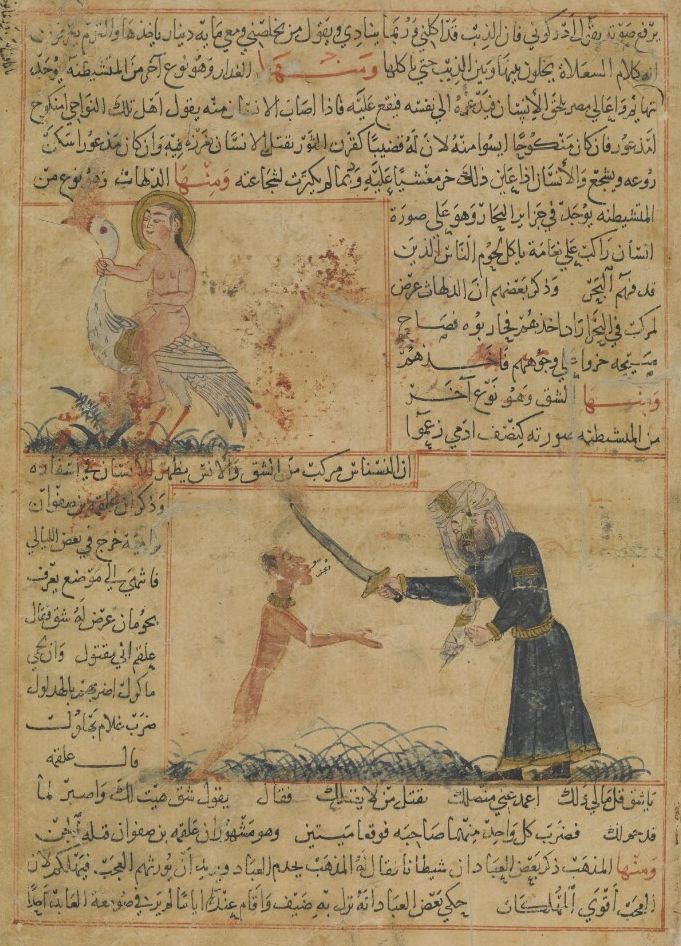 يرفع صوته يقول ادركوني فان الذيب قد اكلني وربما ينادي ويقول من يخلصني ومعي مايه دينار ياخذها والقوم يعرفون
انه كلام السعلاة يخلون بينها وبين الذيب حتى ياكلها ومنها الغدار وهو نوع آخر من المتشيطنه يوجد
لمذعور فان كان منكوحا ايسوا منه لان له قضيبا كقرن الثور يقتل الانسان بغرزه فيه وان كان مذعورا سكن
روعه ويشجع والانسان اذا عاين ذلك خر مغشيا عليه وربما لم يكترث لشجاعته ومنها الدلهاث وهو نوع من
المتشيطنه يوجد في جزاير البحار وهو على صورة
انسان راكب على نعامة ياكل لحوم الناس الذين
قذفهم البحر وذكر بعضهم ان الدلهاث عرض
لمركب في البحر اراد اخذهم فحاربوه فصاح
صيحه خروا على وجوههم فاخذهم
ومنها الشق وهو نوع آخر
من المتشيطنه صورته كنصف ادمي زعموا
ان النسناس مركب من الشق والانس يظهر للانسان في اسفاره
وذكر ان علقمة بن صفوان
خرج في بعض الليالي
فانتهى الى موضع يعرف
بحومان عرض له شق فقال
علقم اني مقتول وان لحمي
ماكول اضربهم بالهذلول
ضرب غلام
قال علقمه
يا شق مالي ولك اغمد عني منصلك تقتل من لا يقتلك فقال شق هيت لك واصبر لما
قد حم لك فضرب كل واحد منهما صاحبه فوقعا ميتين وهو مشهور ان علقمه بن صفوان قتله الجن
ومنها المذهب ذكر بعض العباد ان شيطانا يقال له المذهب يخدم العباد ويريد ان يورثهم العجب فيهلكهم لان
العجب اقوى المهلكات حكى بعض العباد انه نزل به ضيف واقام عنده اياما لم ير في صومعة العابد احدا